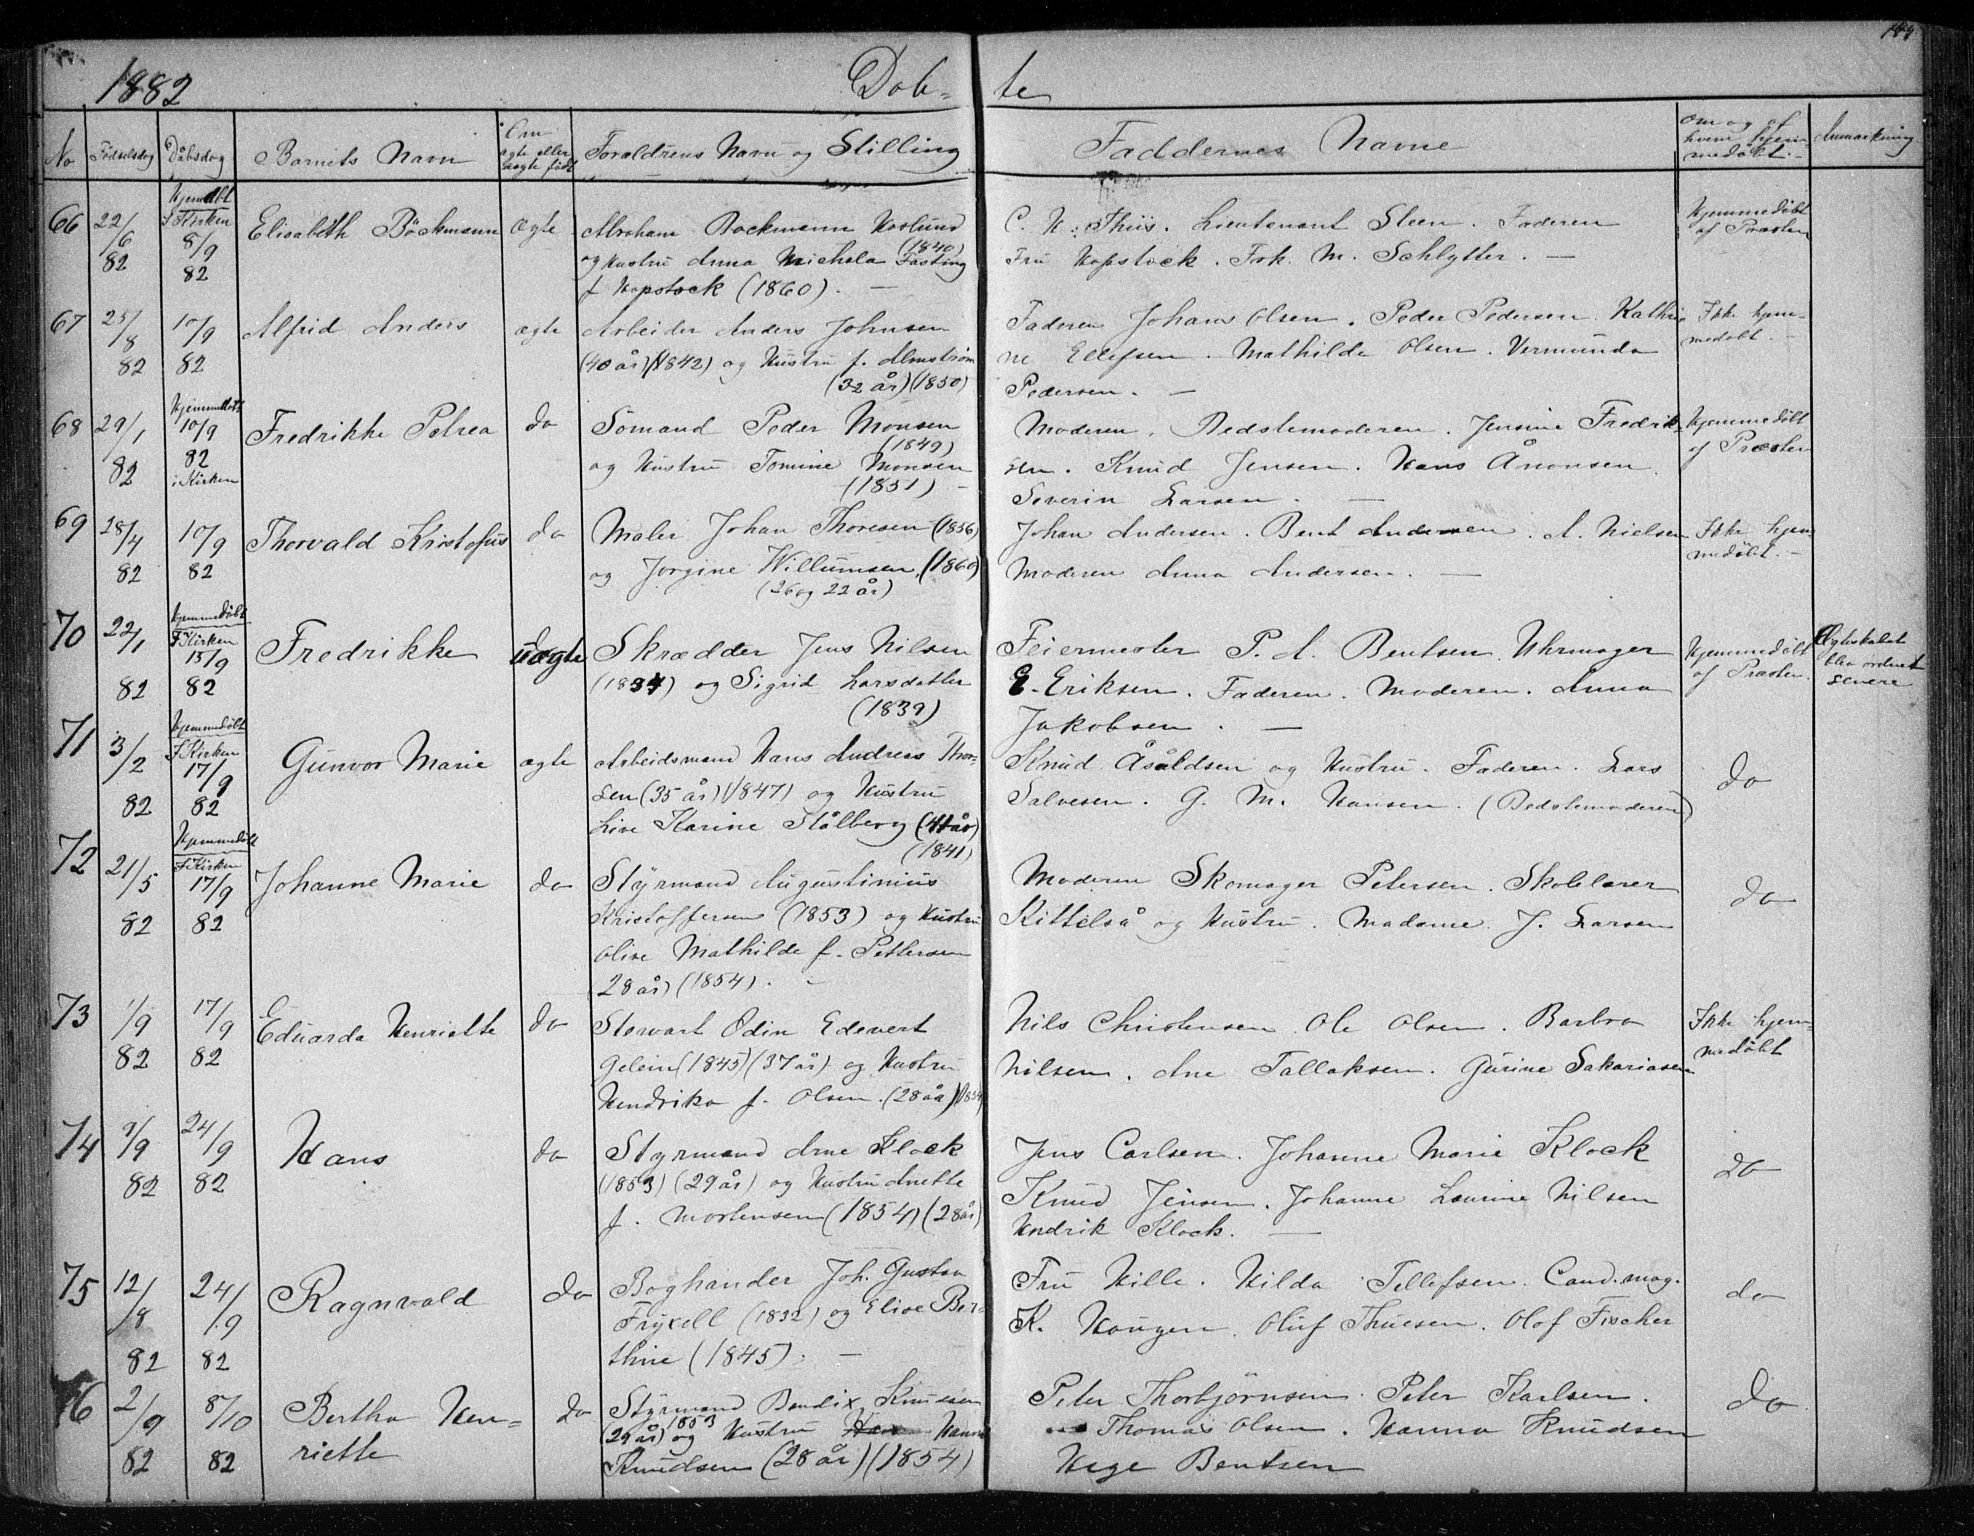 1882 Döb- te
No Födselsdag Dåbsdag Barnets Navn Om ægte eller uægte født Foraldrens Navn og Stilling Faddernes Navne om og af hvem hjemmedöbt. Anmærkning
66 22/6 82 Hjemdbt I Kirken 8/9 82 Elisabeth Böckmann Ægte
Abraham Bockmann Hoslund
(1840)
og Hustru Anna Michela Fasting
f Hopstock (1860). —
C. N. Thiis. Lieutenant Steen. Faderen
Fru Hopstock. Frk. M. Schlytter. —
Hjemmedöbt
af Præsten
67 25/8 82 10/9 82 Alfrid Anders ægte
Arbeider Anders Johnsen
(40 år) (1842) og Hustru f. Almstrøm
(32 år) (1850)
Faderen Johan Olsen. Peder Pedersen. Kathri-
ne Ellefsen. Mathilde Olsen. Vermunda
Pedersen. —
Ikke hjem-
medøbt. —
68 29/1 82 Hjemmedøbt 10/9 82 i Kirken Fredrikke Petrea do
Sömand Peder Monsen
(1849)
og Hustru Tomine Monsen
(1851) —
Moderen. Bedstemoderen. Jensine Fredrik-
sen. Knud Jensen. Hans Ånonsen.
Severin Larsen. —
Hjemmedöbt
af Præsten
69 28/4 82 10/9 82 Thorvald Kristofus do
Maler Johan Thoresen (1856)
og Jorgine Willumsen, (1860)
(26 og 22 år)
Johan Andersen. Bent Andersen. A. Nielsen
Moderen Anna Andersen. —
Ikke hjem-
medöbt. —
70 22/1 82 Hjemmedöbt I Kirken 15/9 82 Fredrikke uægte
Skrædder Jens Nilsen
(1834) og Sigrid Larsdatter
(1839)
Feiermester P. A. Bentsen. Uhrmager
E. Eriksen. Faderen. Moderen. Anna
Jakobsen. —
Hjemmedöbt
af Præsten.
Ægteskabet
blev ordnet
senere
71 3/2 82 Hjemmedöbt I Kirken 17/9 82 Gunvor Marie ægte
Arbeidsmand Hans Andreas Thor-
sen (35 år) (1847) og Hustru
Live Karine Stålberg (41 år)
(1841)
Knud Åsåldsen og Hustru. Faderen. Lars
Salvesen. G. M. Hansen. (Bedstemoderen)
do
72 21/5 82 Hjemmedöbt I Kirken 17/9 82 Johanne Marie do
Styrmand Augustinius
Kristoffersen (1853) og Hustru
Olive Mathilde f. Pettersen
28 år) (1854). —
Moderen Skomager Petersen. Skolelærer
Kittelså og Hustru. Madame J. Larsen
do
73 1/9 82 17/9 82 Eduarda Henriette do
Stewart Odin Edevert
Gelein (1845) (37 år) og Hustru
Hendrika f. Olsen. (28 år) (1854)
Nils Christensen. Ole Olsen. Barbro
Nilsen. Ane Tallaksen. Gurine Sakariasen
Ikke hjem-
medöbt
74 1/9 82 24/9 82 Hans do
Styrmand Arne Klock
(1853) (29 år) og Hustru Anette
f. Mortensen (1854) (28 år)
Jens Carlsen. Johanne Marie Klock
Knud Jensen. Johanne Laurine Nilsen
Hendrik Klock. —
do
75 12/8 82 24/9 82 Ragnvald do
Boghander Joh. Gustav
Fryxell (1832) og Elise Ber-
thine (1845). —
Fru Hille. Hilda Tellefsen. Cand. mag.
K. Haugen. Oluf Thuesen. Olof Fischer
do
76 2/9 82 8/10 82 Bertha Hen-
riette do
Styrmand Bendix Knudsen
(29 år) 1853 og Hustru Hanna
Knudsen (28 år) (1854)
Peter Thorbjörnsen. Peter Karlsen.
Thomas Olsen. Hanna Knudsen
Hege Bentsen
do